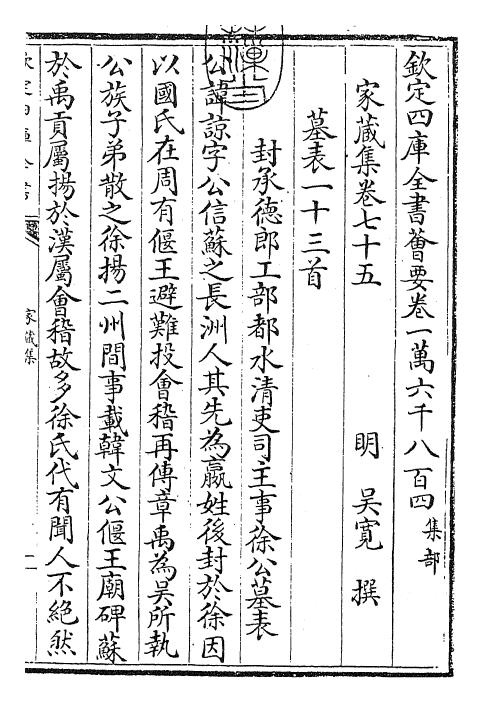 欽定四庫全書薈要卷一萬六千八百四集部
家藏集卷七十五
明吳寬撰
墓表一十三首
封承德郎工部都水清吏司主事徐公墓表
公諱諒字公信蘇之長洲人其先為嬴姓後封於徐因
以國氏在周有偃王避難投會稽再傳章禹為吳所執
公族子弟散之徐揚二州間事載韓文公偃王廟碑蘇
於禹貢屬揚於漢屬會稽故多徐氏代有聞人不絕然
家藏集
一